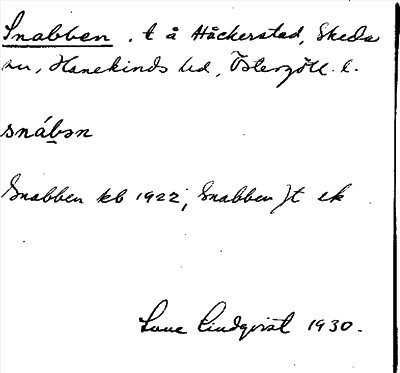 Snabben . t å Håckerstad, Skeda
sn, Hanekinds hd, Östergötl. l.
snábən
Snabben kb 1922; Snabben Jt ek
Sune Lindqvist 1930.